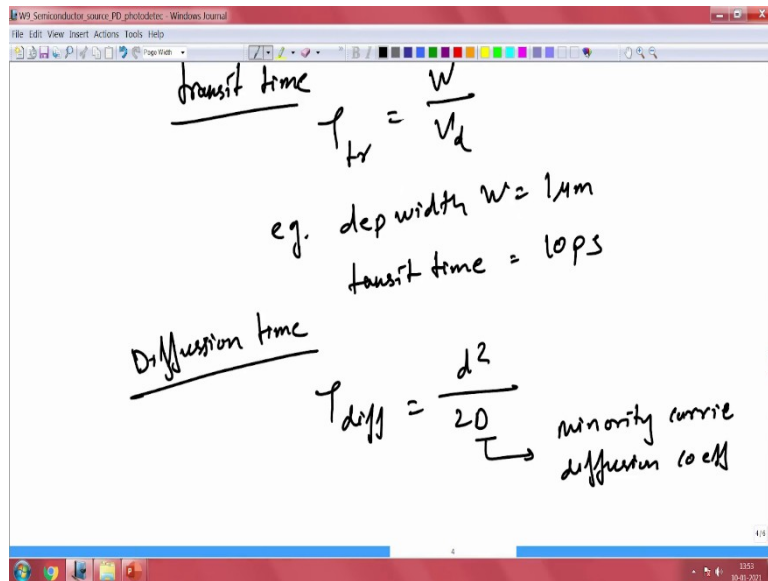 W9_Semiconductor_source_PD_photodetec - Windows Journal
File Edit View Insert Actions Tools Help
Page Width
transit time
τtr = W / Vd
eg. dep width W = 1μm
tansit time = 10ps
Diffussion time
τdiff = d² / 2D
minority carrie
diffusion coeff
4/6
4
13:53
10-01-2021